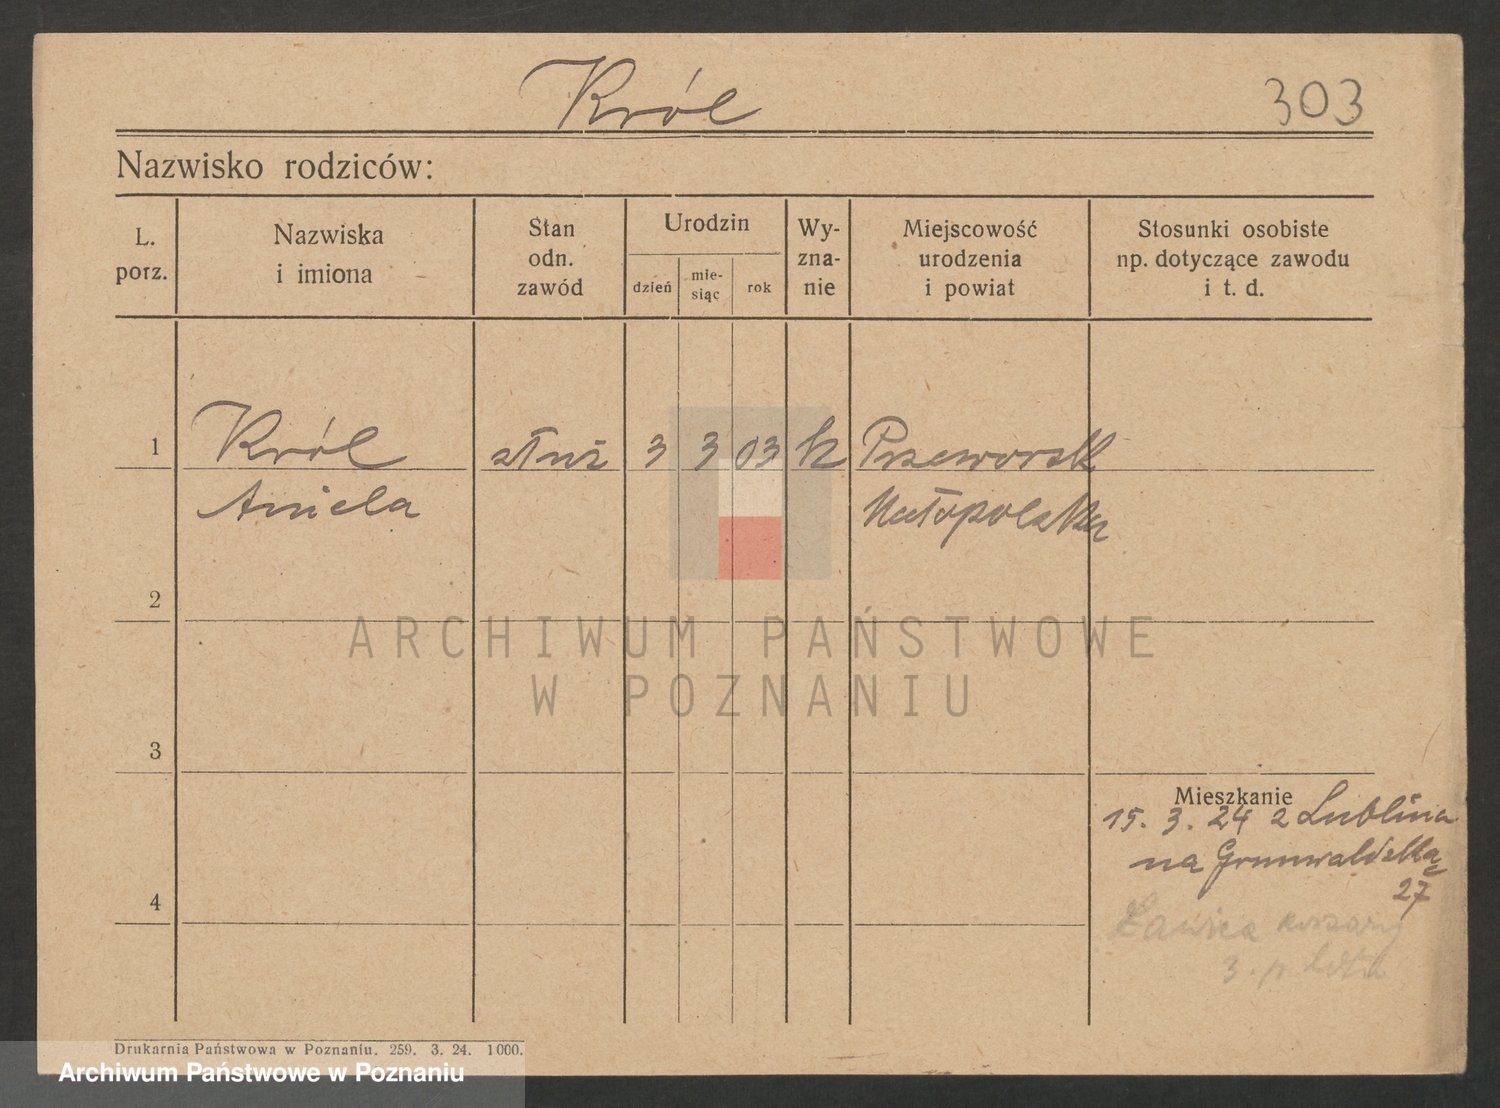 Król
303
Nazwisko rodziców:
L. porz.
Nazwiska i imiona
Stan odn. zawód
Urodzin
dzień
mie-
siąc
rok
Wy-
zna-
nie
Miejscowość
urodzenia
i powiat
Stosunki osobiste
np. dotyczące zawodu
i t. d.
1 Król służ 3 3 03 k Przeworsk
Aniela Małopolska
2
3
ARCHIWUM PAŃSTWOWE
W POZNANIU
Mieszkanie
15. 3. 24 z Lublina
na Grunwaldzką
27
4
Ławica koszary
3. p. lotn
Drukarnia Państwowa w Poznaniu. 259. 3. 24. 1000.
Archiwum Państwowe w Poznaniu